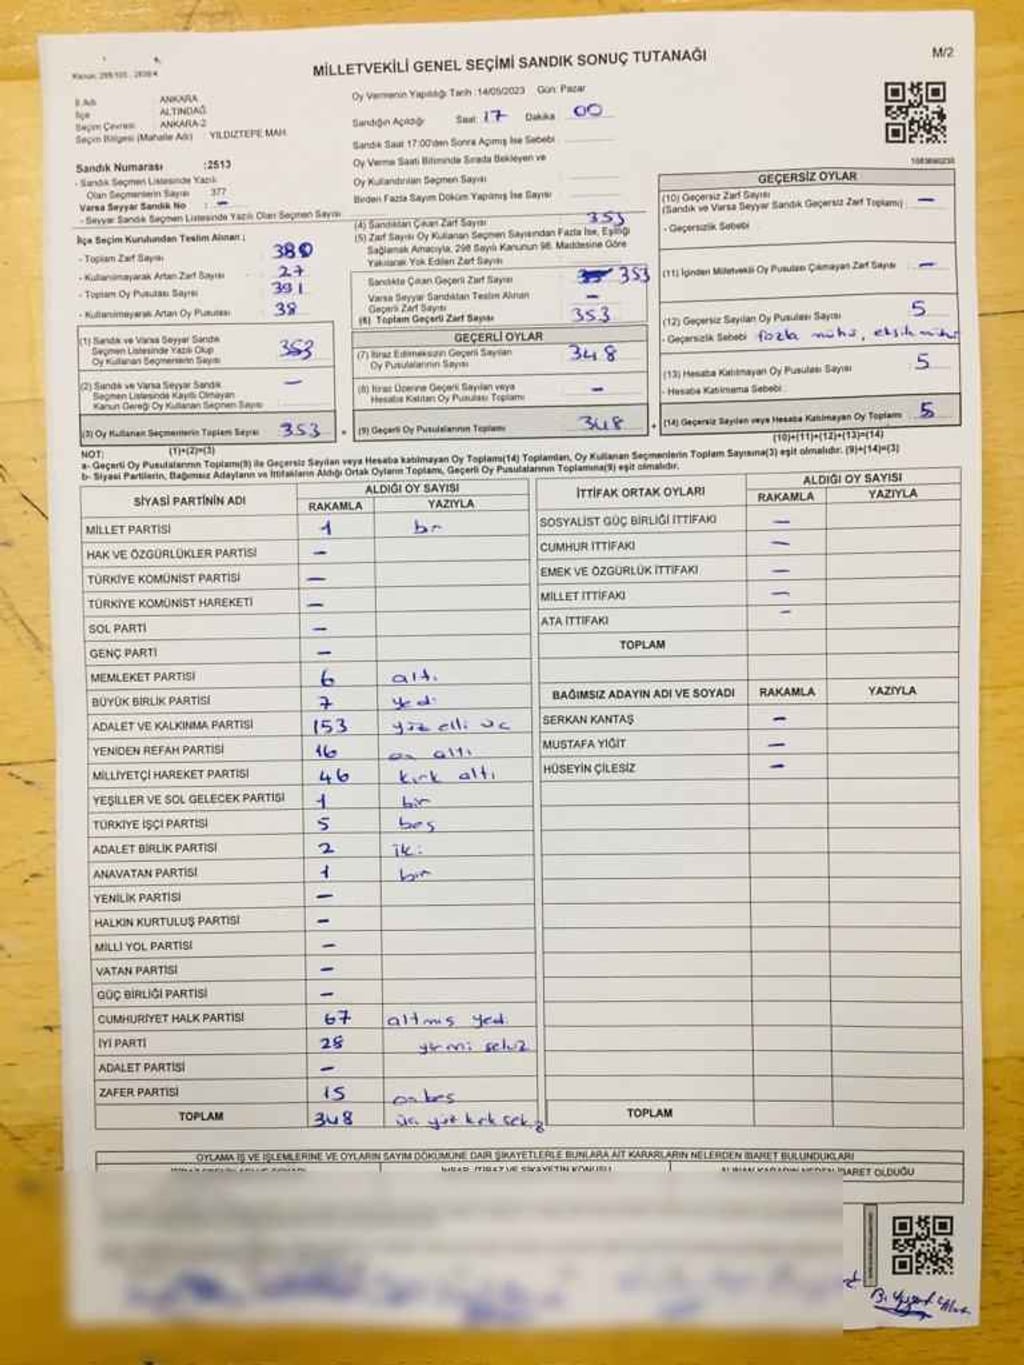 M/2
MİLLETVEKİLİ GENEL SEÇİMİ SANDIK SONUÇ TUTANAĞI
İl Adı ANKARA
İlçe ALTINDAĞ
Seçim Çevresi ANKARA-2
Seçim Bölgesi (Mahalle Adı) YILDIZTEPE MAH.
Sandık Numarası :2513
- Sandık Seçmen Listesinde Yazılı
Olan Seçmenlerin Sayısı 377
Varsa Seyyar Sandık No : –
- Seyyar Sandık Seçmen Listesinde Yazılı Olan Seçmen Sayısı
Oy Vermenin Yapıldığı Tarih :14/05/2023 Gün: Pazar
Sandığın Açıldığı Saat: 17 Dakika 00
Sandık Saat 17:00'den Sonra Açılmış İse Sebebi
Oy Verme Saati Bitiminde Sırada Bekleyen ve
Oy Kullandırılan Seçmen Sayısı
Birden Fazla Sayım Döküm Yapılmış İse Sayısı
İlçe Seçim Kurulundan Teslim Alınan ;
- Toplam Zarf Sayısı 380
- Kullanılmayarak Artan Zarf Sayısı 27
- Toplam Oy Pusulası Sayısı 391
- Kullanılmayarak Artan Oy Pusulası 38
(1) Sandık ve Varsa Seyyar Sandık
Seçmen Listesinde Yazılı Olup
Oy Kullanan Seçmenlerin Sayısı 353
(2) Sandık ve Varsa Seyyar Sandık
Seçmen Listesinde Kayıtlı Olmayan
Kanun Gereği Oy Kullanan Seçmen Sayısı –
(3) Oy Kullanan Seçmenlerin Toplam Sayısı 353
(1)+(2)=(3)
(4) Sandıktan Çıkan Zarf Sayısı 353
(5) Zarf Sayısı Oy Kullanan Seçmen Sayısından Fazla İse, Eşitliği
Sağlamak Amacıyla, 298 Sayılı Kanunun 98. Maddesine Göre
Yakılarak Yok Edilen Zarf Sayısı
Sandıkta Çıkan Geçerli Zarf Sayısı 353
Varsa Seyyar Sandıktan Teslim Alınan
Geçerli Zarf Sayısı –
(6) Toplam Geçerli Zarf Sayısı 353
GEÇERLİ OYLAR
(7) İtiraz Edilmeksizin Geçerli Sayılan
Oy Pusulalarının Sayısı 348
(8) İtiraz Üzerine Geçerli Sayılan veya
Hesaba Katılan Oy Pusulası Toplamı –
(9) Geçerli Oy Pusulalarının Toplamı 348
GEÇERSİZ OYLAR
(10) Geçersiz Zarf Sayısı
(Sandık ve Varsa Seyyar Sandık Geçersiz Zarf Toplamı) –
- Geçersizlik Sebebi
(11) İçinden Milletvekili Oy Pusulası Çıkmayan Zarf Sayısı –
(12) Geçersiz Sayılan Oy Pusulası Sayısı 5
- Geçersizlik Sebebi fazla mühür, eksik mühür
(13) Hesaba Katılmayan Oy Pusulası Sayısı 5
- Hesaba Katılmama Sebebi :
(14) Geçersiz Sayılan veya Hesaba Katılmayan Oy Toplamı 5
(10)+(11)+(12)+(13)=(14)
NOT:
a- Geçerli Oy Pusulalarının Toplamı(9) ile Geçersiz Sayılan veya Hesaba katılmayan Oy Toplamı(14) Toplamları, Oy Kullanan Seçmenlerin Toplam Sayısına(3) eşit olmalıdır. (9)+(14)=(3)
b- Siyasi Partilerin, Bağımsız Adayların ve İttifakların Aldığı Ortak Oyların Toplamı, Geçerli Oy Pusulalarının Toplamına(9) eşit olmalıdır.
SİYASİ PARTİNİN ADI ALDIĞI OY SAYISI
RAKAMLA YAZIYLA
MİLLET PARTİSİ 1 bir
HAK VE ÖZGÜRLÜKLER PARTİSİ –
TÜRKİYE KOMÜNİST PARTİSİ –
TÜRKİYE KOMÜNİST HAREKETİ –
SOL PARTİ –
GENÇ PARTİ –
MEMLEKET PARTİSİ 6 altı
BÜYÜK BİRLİK PARTİSİ 7 yedi
ADALET VE KALKINMA PARTİSİ 153 yüz elli üç
YENİDEN REFAH PARTİSİ 16 on altı
MİLLİYETÇİ HAREKET PARTİSİ 46 kırk altı
YEŞİLLER VE SOL GELECEK PARTİSİ 1 bir
TÜRKİYE İŞÇİ PARTİSİ 5 beş
ADALET BİRLİK PARTİSİ 2 iki
ANAVATAN PARTİSİ 1 bir
YENİLİK PARTİSİ –
HALKIN KURTULUŞ PARTİSİ –
MİLLİ YOL PARTİSİ –
VATAN PARTİSİ –
GÜÇ BİRLİĞİ PARTİSİ –
CUMHURİYET HALK PARTİSİ 67 altmış yedi
İYİ PARTİ 28 yirmi sekiz
ADALET PARTİSİ –
ZAFER PARTİSİ 15 onbeş
TOPLAM 348 üç yüz kırk sekiz
İTTİFAK ORTAK OYLARI ALDIĞI OY SAYISI
RAKAMLA YAZIYLA
SOSYALİST GÜÇ BİRLİĞİ İTTİFAKI –
CUMHUR İTTİFAKI –
EMEK VE ÖZGÜRLÜK İTTİFAKI –
MİLLET İTTİFAKI –
ATA İTTİFAKI –
TOPLAM
BAĞIMSIZ ADAYIN ADI VE SOYADI RAKAMLA YAZIYLA
SERKAN KANTAŞ –
MUSTAFA YİĞİT –
HÜSEYİN ÇİLESİZ –
TOPLAM
OYLAMA İŞ VE İŞLEMLERİNE VE OYLARIN SAYIM DÖKÜMÜNE DAİR ŞİKAYETLERLE BUNLARA AİT KARARLARIN NELERDEN İBARET BULUNDUKLARI